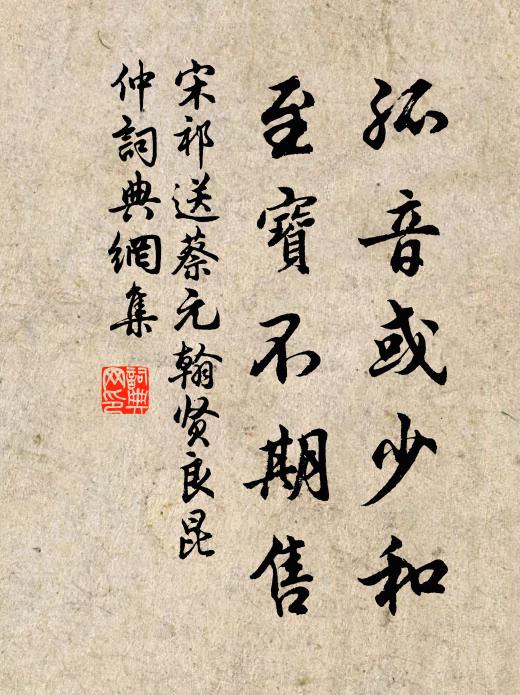 孤音或少和
至寶不期售
宋祁送蔡元翰贤良昆
仲詞典網集
詞典
网印